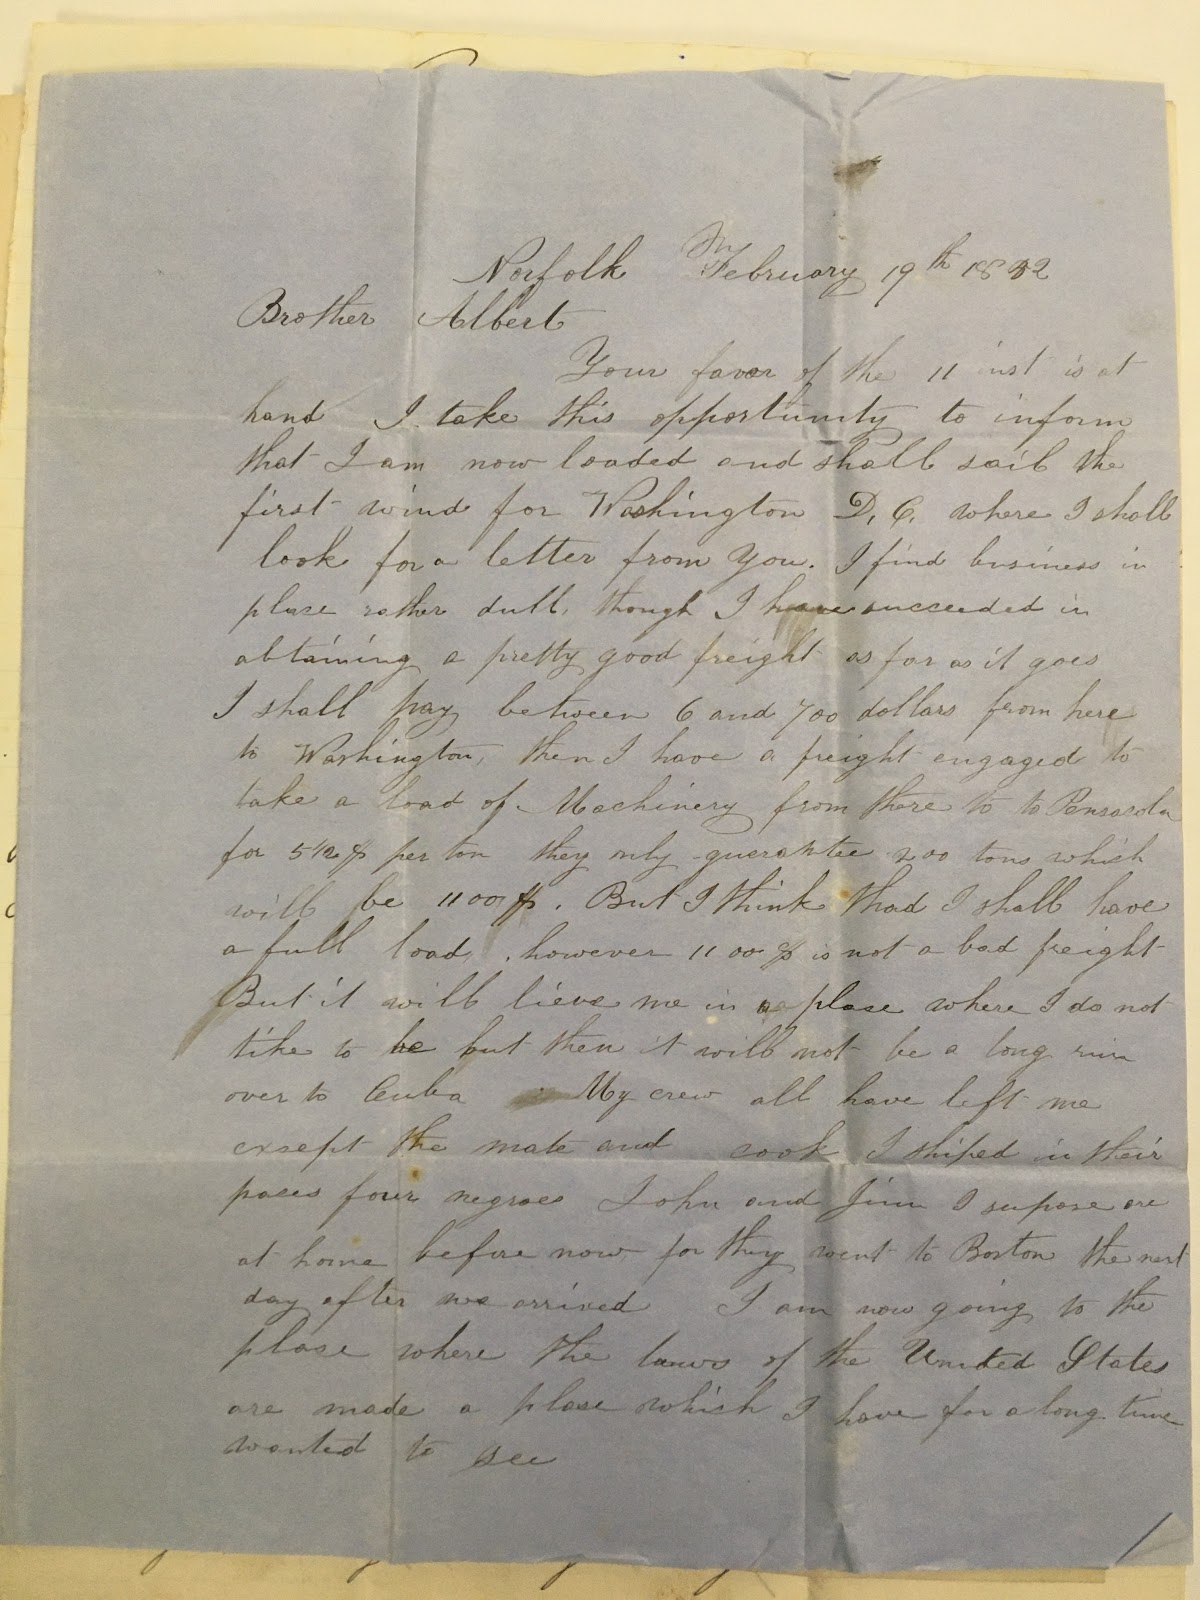 Norfolk February 19th 18
Brother Albert
Your favor of the 11 inst is at
hand I take this opportunity to inform
that I am now loaded and shall sail the
first wind for Washington D, C. where I shall
look for a letter from you. I find business in
plase rather dull, though I have succeeded in
obtaining a pretty good freight as far as it goes
I shall pay between 6 and 700 dollars from here
to Washington, then I have a freight engaged to
take a load of Machinery from there to to Pensacola
for 5 1/2 $ per ton they only guerantee 200 tons which
will be 1100 $. But I think thad I shall have
a full load, however 1100 $ is not a bad freight
But it will lieve me in a plase where I do not
like to be but then it will not be a long run
over to Cuba My crew all have left me
exsept the mate and cook I shiped in their
paces four negroes John and Jim I supose are
at home before now for they went to Boston the next
day after we arrived I am now going to the
plase where the laws of the United States
are made a plase which I have for a long time
wanted to see